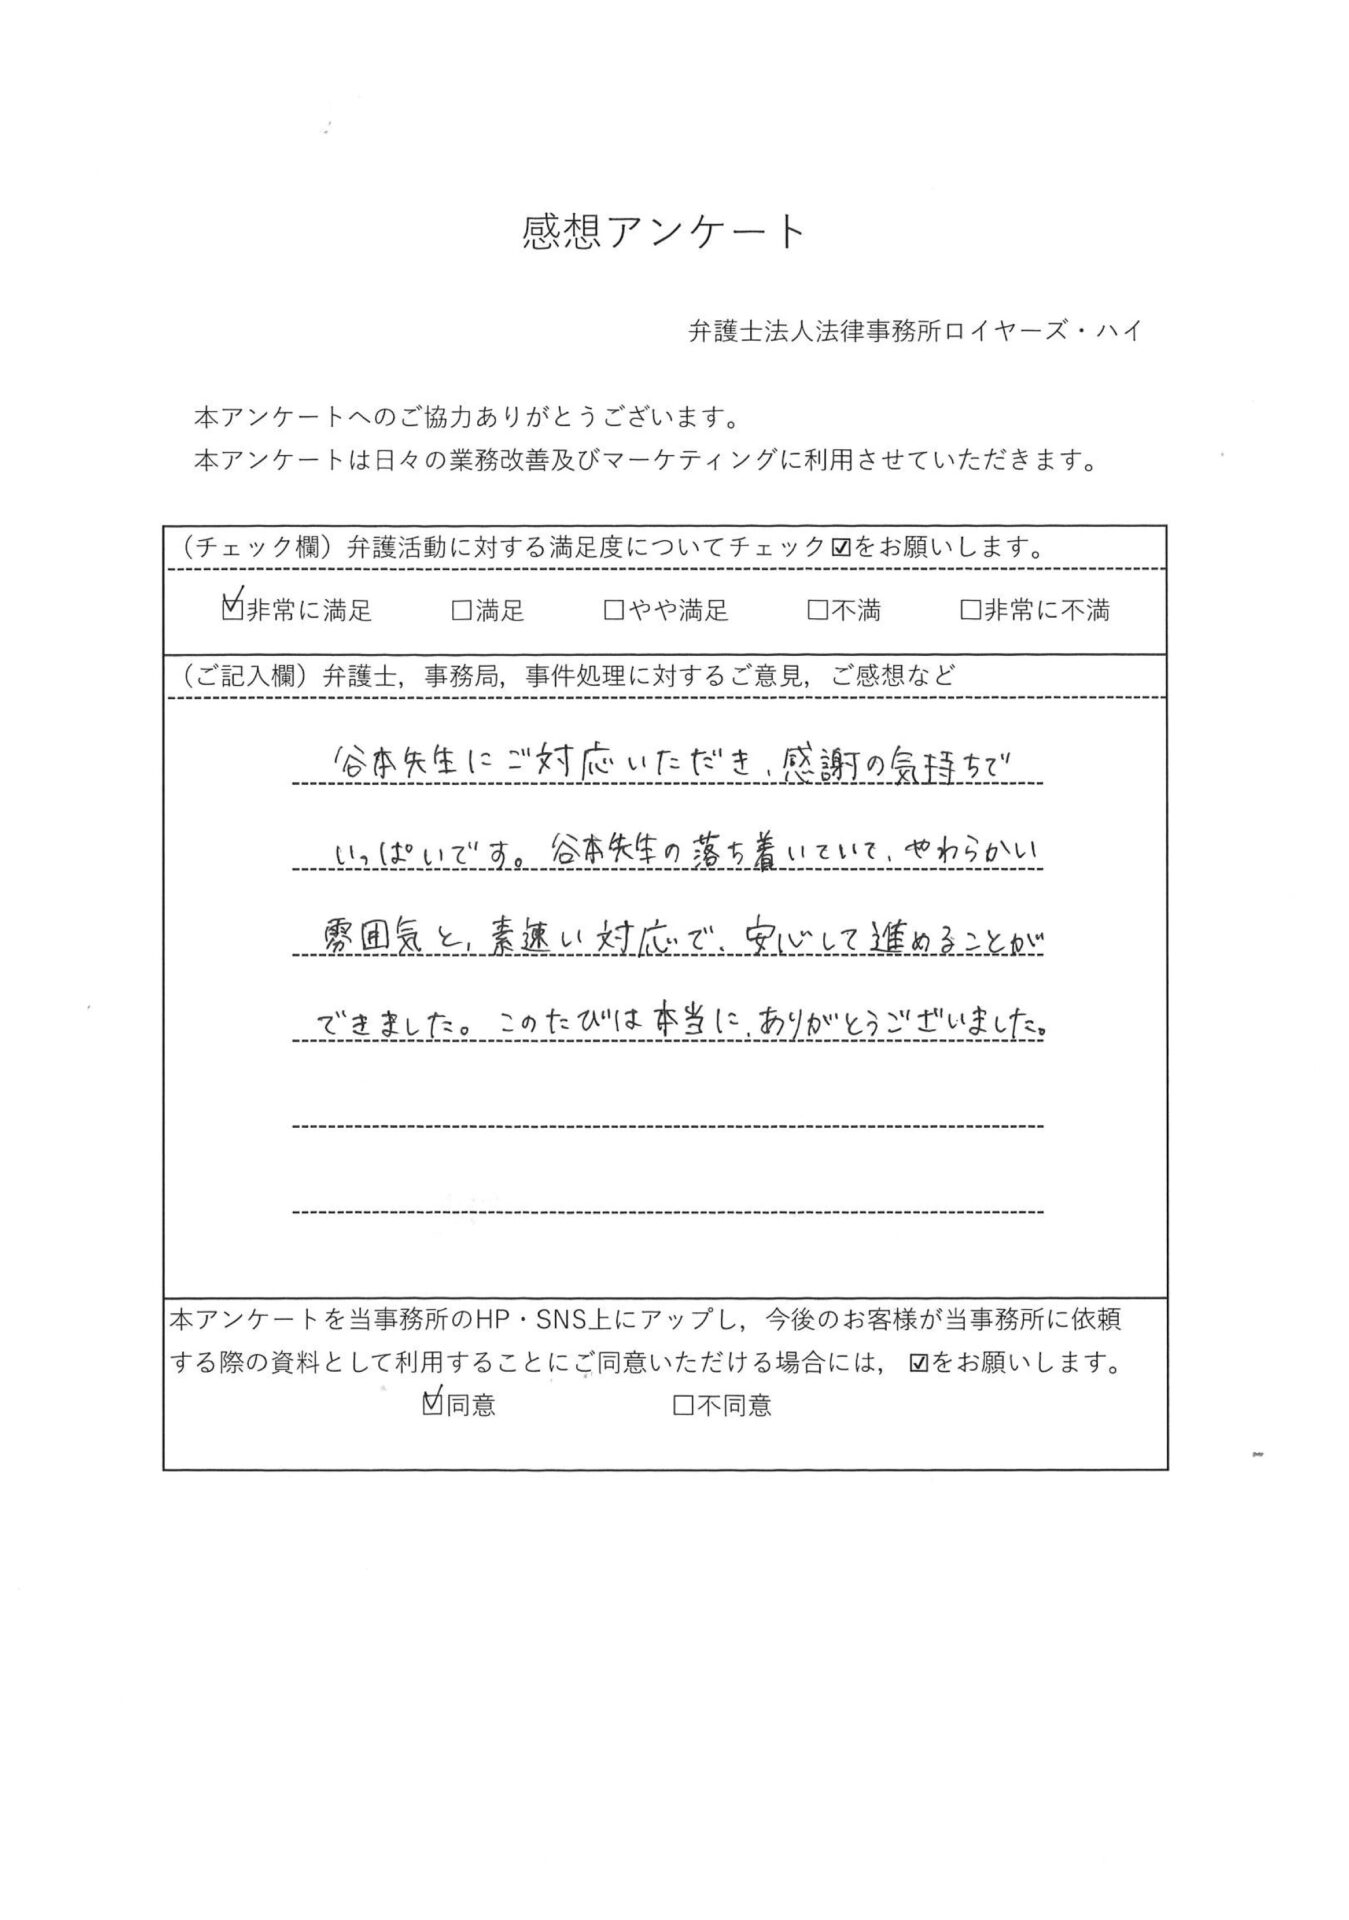 感想アンケート
弁護士法人法律事務所ロイヤーズ・ハイ
本アンケートへのご協力ありがとうございます。
本アンケートは日々の業務改善及びマーケティングに利用させていただきます。
（チェック欄）弁護活動に対する満足度についてチェック☑をお願いします。
☑非常に満足 □満足 □やや満足 □不満 □非常に不満
（ご記入欄）弁護士，事務局，事件処理に対するご意見，ご感想など
谷本先生にご対応いただき、感謝の気持ちで
いっぱいです。谷本先生の落ち着いていて、やわらかい
雰囲気と、素速い対応で、安心して進めることが
できました。このたびは本当に、ありがとうございました。
本アンケートを当事務所のHP・SNS上にアップし，今後のお客様が当事務所に依頼
する際の資料として利用することにご同意いただける場合には，☑をお願いします。
☑同意 □不同意